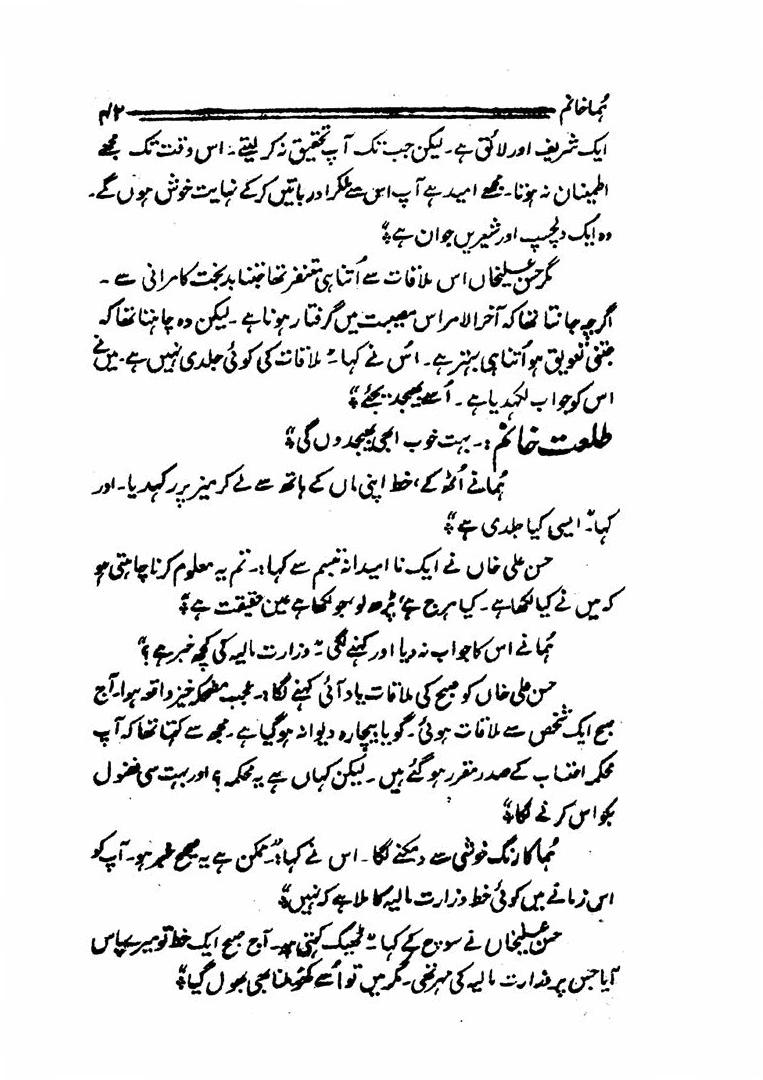 ہما خانم ۴۲
ایک شریف اور لائق ہے۔ لیکن جب تک آپ تحقیق نہ کر لیتے۔ اس وقت تک مجھے
اطمینان نہ ہوتا۔ مجھے امید ہے آپ اس سے ملکر اور باتیں کرکے نہایت خوش ہوں گے۔
وہ ایک دلچسپ اور شیریں جوان ہے"؛
مگر حسن علیخاں اس ملاقات سے اُتنا ہی متنفر تھا جتنا بدبخت کامرانی سے۔
اگرچہ جانتا تھا کہ آخرالامر اس مصیبت میں گرفتار ہونا ہے۔ لیکن وہ چاہتا تھا کہ
جتنی تعویق ہو اُتنا ہی بہتر ہے۔ اس نے کہا۔" ملاقات کی کوئی جلدی نہیں ہے۔ میں نے
اس کو جواب لکھدیا ہے۔ اُسے بھیجد یجئے"؛
طلعت خانم:۔ بہت خوب ابھی بھیجدوں گی"؛
ہما نے اُٹھ کے، خط اپنی ماں کے ہاتھ سے لے کر میز پر رکھدیا۔ اور
کہا۔" ایسی کیا جلدی ہے"؛
حسن علی خاں نے ایک نا امیدانہ تبسم سے کہا:۔ تم یہ معلوم کرنا چاہتی ہو
کہ میں نے کیا لکھا ہے۔ کیا ہرج ہے، پڑھ لو جو لکھا ہے عین حقیقت ہے"؛
ہما نے اس کا جواب نہ دیا اور کہنے لگی۔" وزارت مالیہ کی کچھ خبر ہے؟"
حسن علی خاں کو صبح کی ملاقات یاد آئی کہنے لگا:۔ عجب مضحکہ خیز واقعہ ہوا۔ آج
صبح ایک شخص سے ملاقات ہوئی۔ گویا بیچارہ دیوانہ ہوگیا ہے۔ مجھ سے کہتا تھا کہ آپ
محکمہ احتساب کے صدر مقرر ہو گئے ہیں۔ لیکن کہاں ہے یہ محکمہ؟ اور بہت سی فضول
بکواس کرنے لگا"؛
ہما کا رنگ خوشی سے دمکنے لگا۔ اس نے کہا:۔"ممکن ہے یہ صحیح خبر ہو۔ آپ کو
اس زمانے میں کوئی خط وزارت مالیہ کا ملا ہے کہ نہیں"؛
حسن علیخاں نے سوچ کے کہا۔" ٹھیک کہتی ہو۔ آج صبح ایک خط تو میرے پاس
آیا جس پر وزارت مالیہ کی مہر تھی۔ مگر میں تو اُسے کھولنا بھی بھول گیا"؛